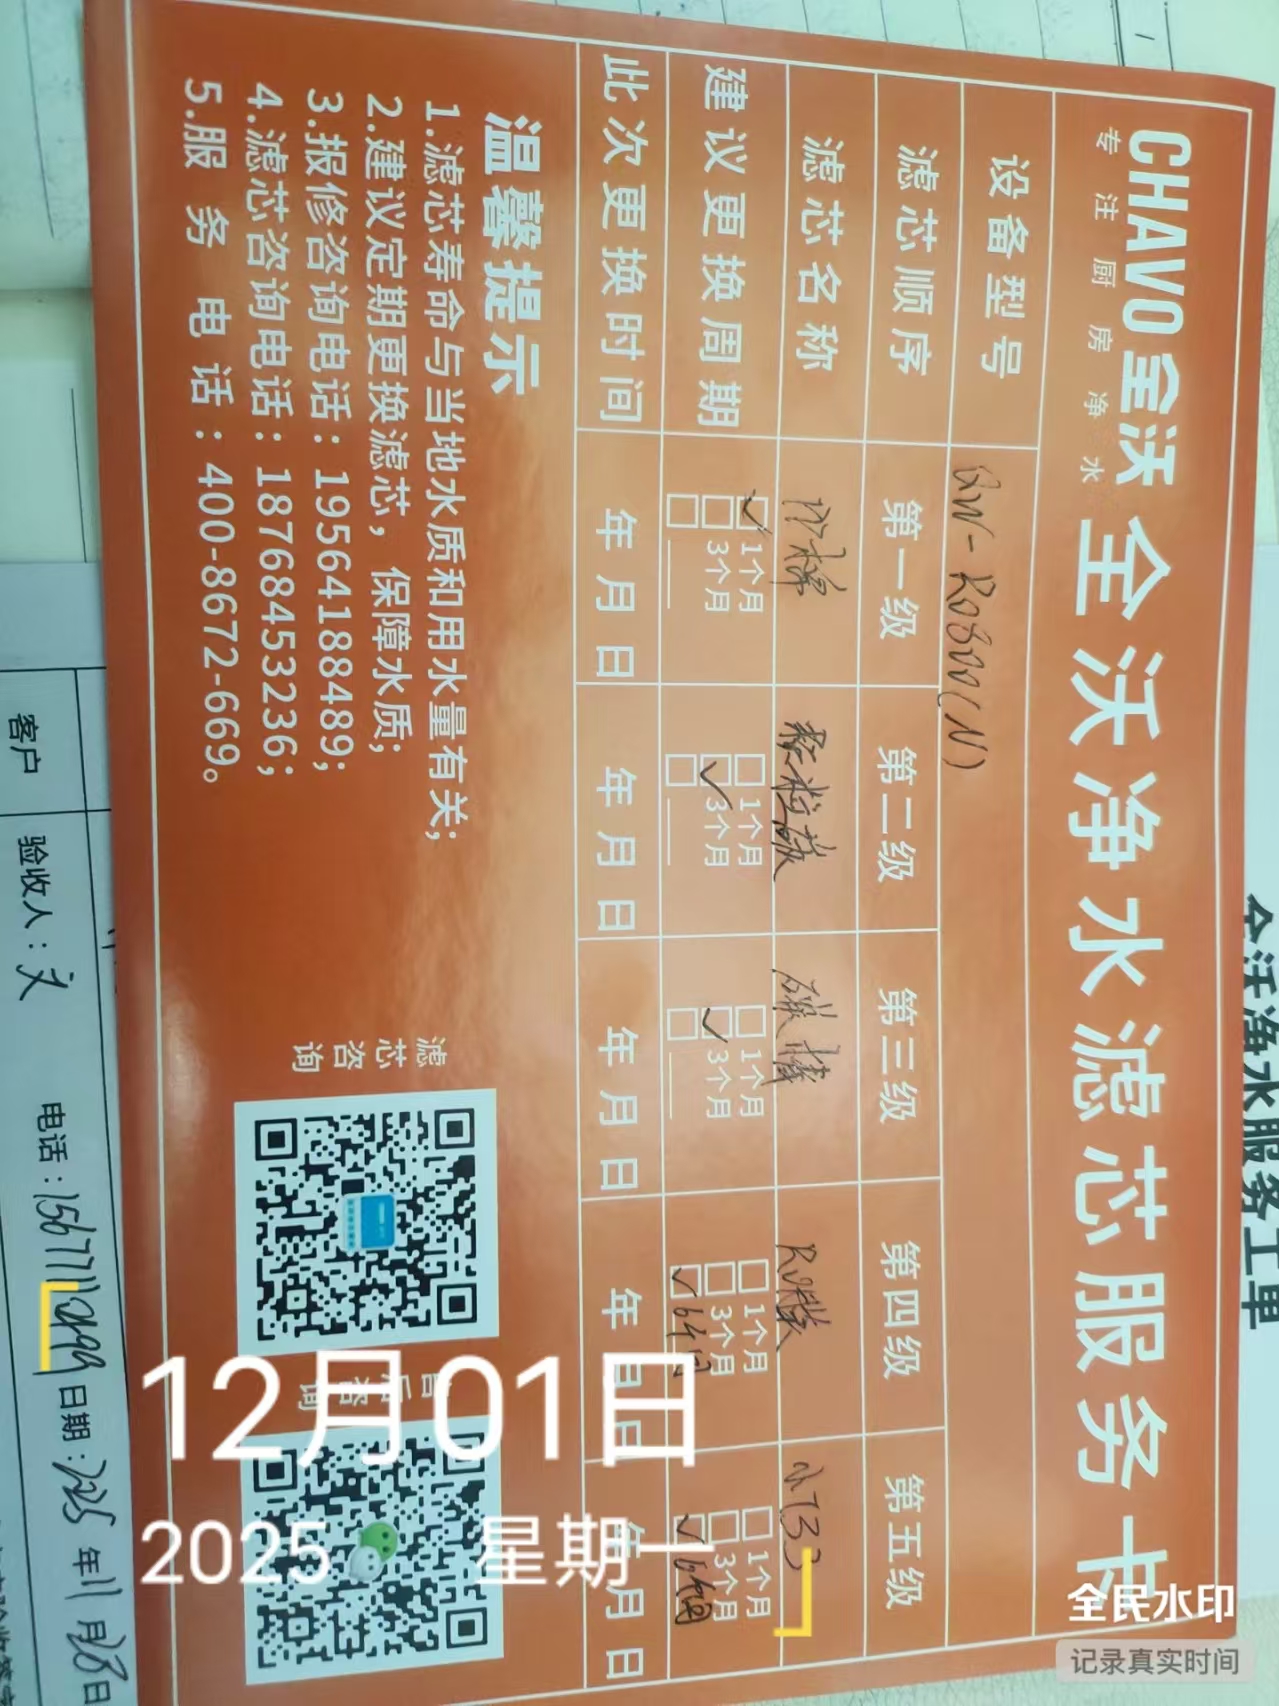 CHAVO 全沃 全沃净水滤芯服务卡
专注厨房净水
设备型号 QW-RO800(N)
滤芯顺序 第一级 第二级 第三级 第四级 第五级
滤芯名称 RO膜
建议更换周期 ☑1个月 □1个月 □1个月 □1个月 □1个月
□3个月 ☑3个月 ☑3个月 □3个月 □3个月
□____ □____ □____ ☑6个月 ☑
此次更换时间 年 月 日 年 月 日 年 月 日 年 月 日 年 月 日
温馨提示
1.滤芯寿命与当地水质和用水量有关;
2.建议定期更换滤芯，保障水质;
3.报修咨询电话：19564188489;
4.滤芯咨询电话：18768453236;
5.服务电话：400-8672-669。
滤芯咨询
售后咨询
全沃净水服务工单
客户
验收人：文 电话： 日期：2025年11月28日
12月01日
2025 星期一
全民水印
记录真实时间